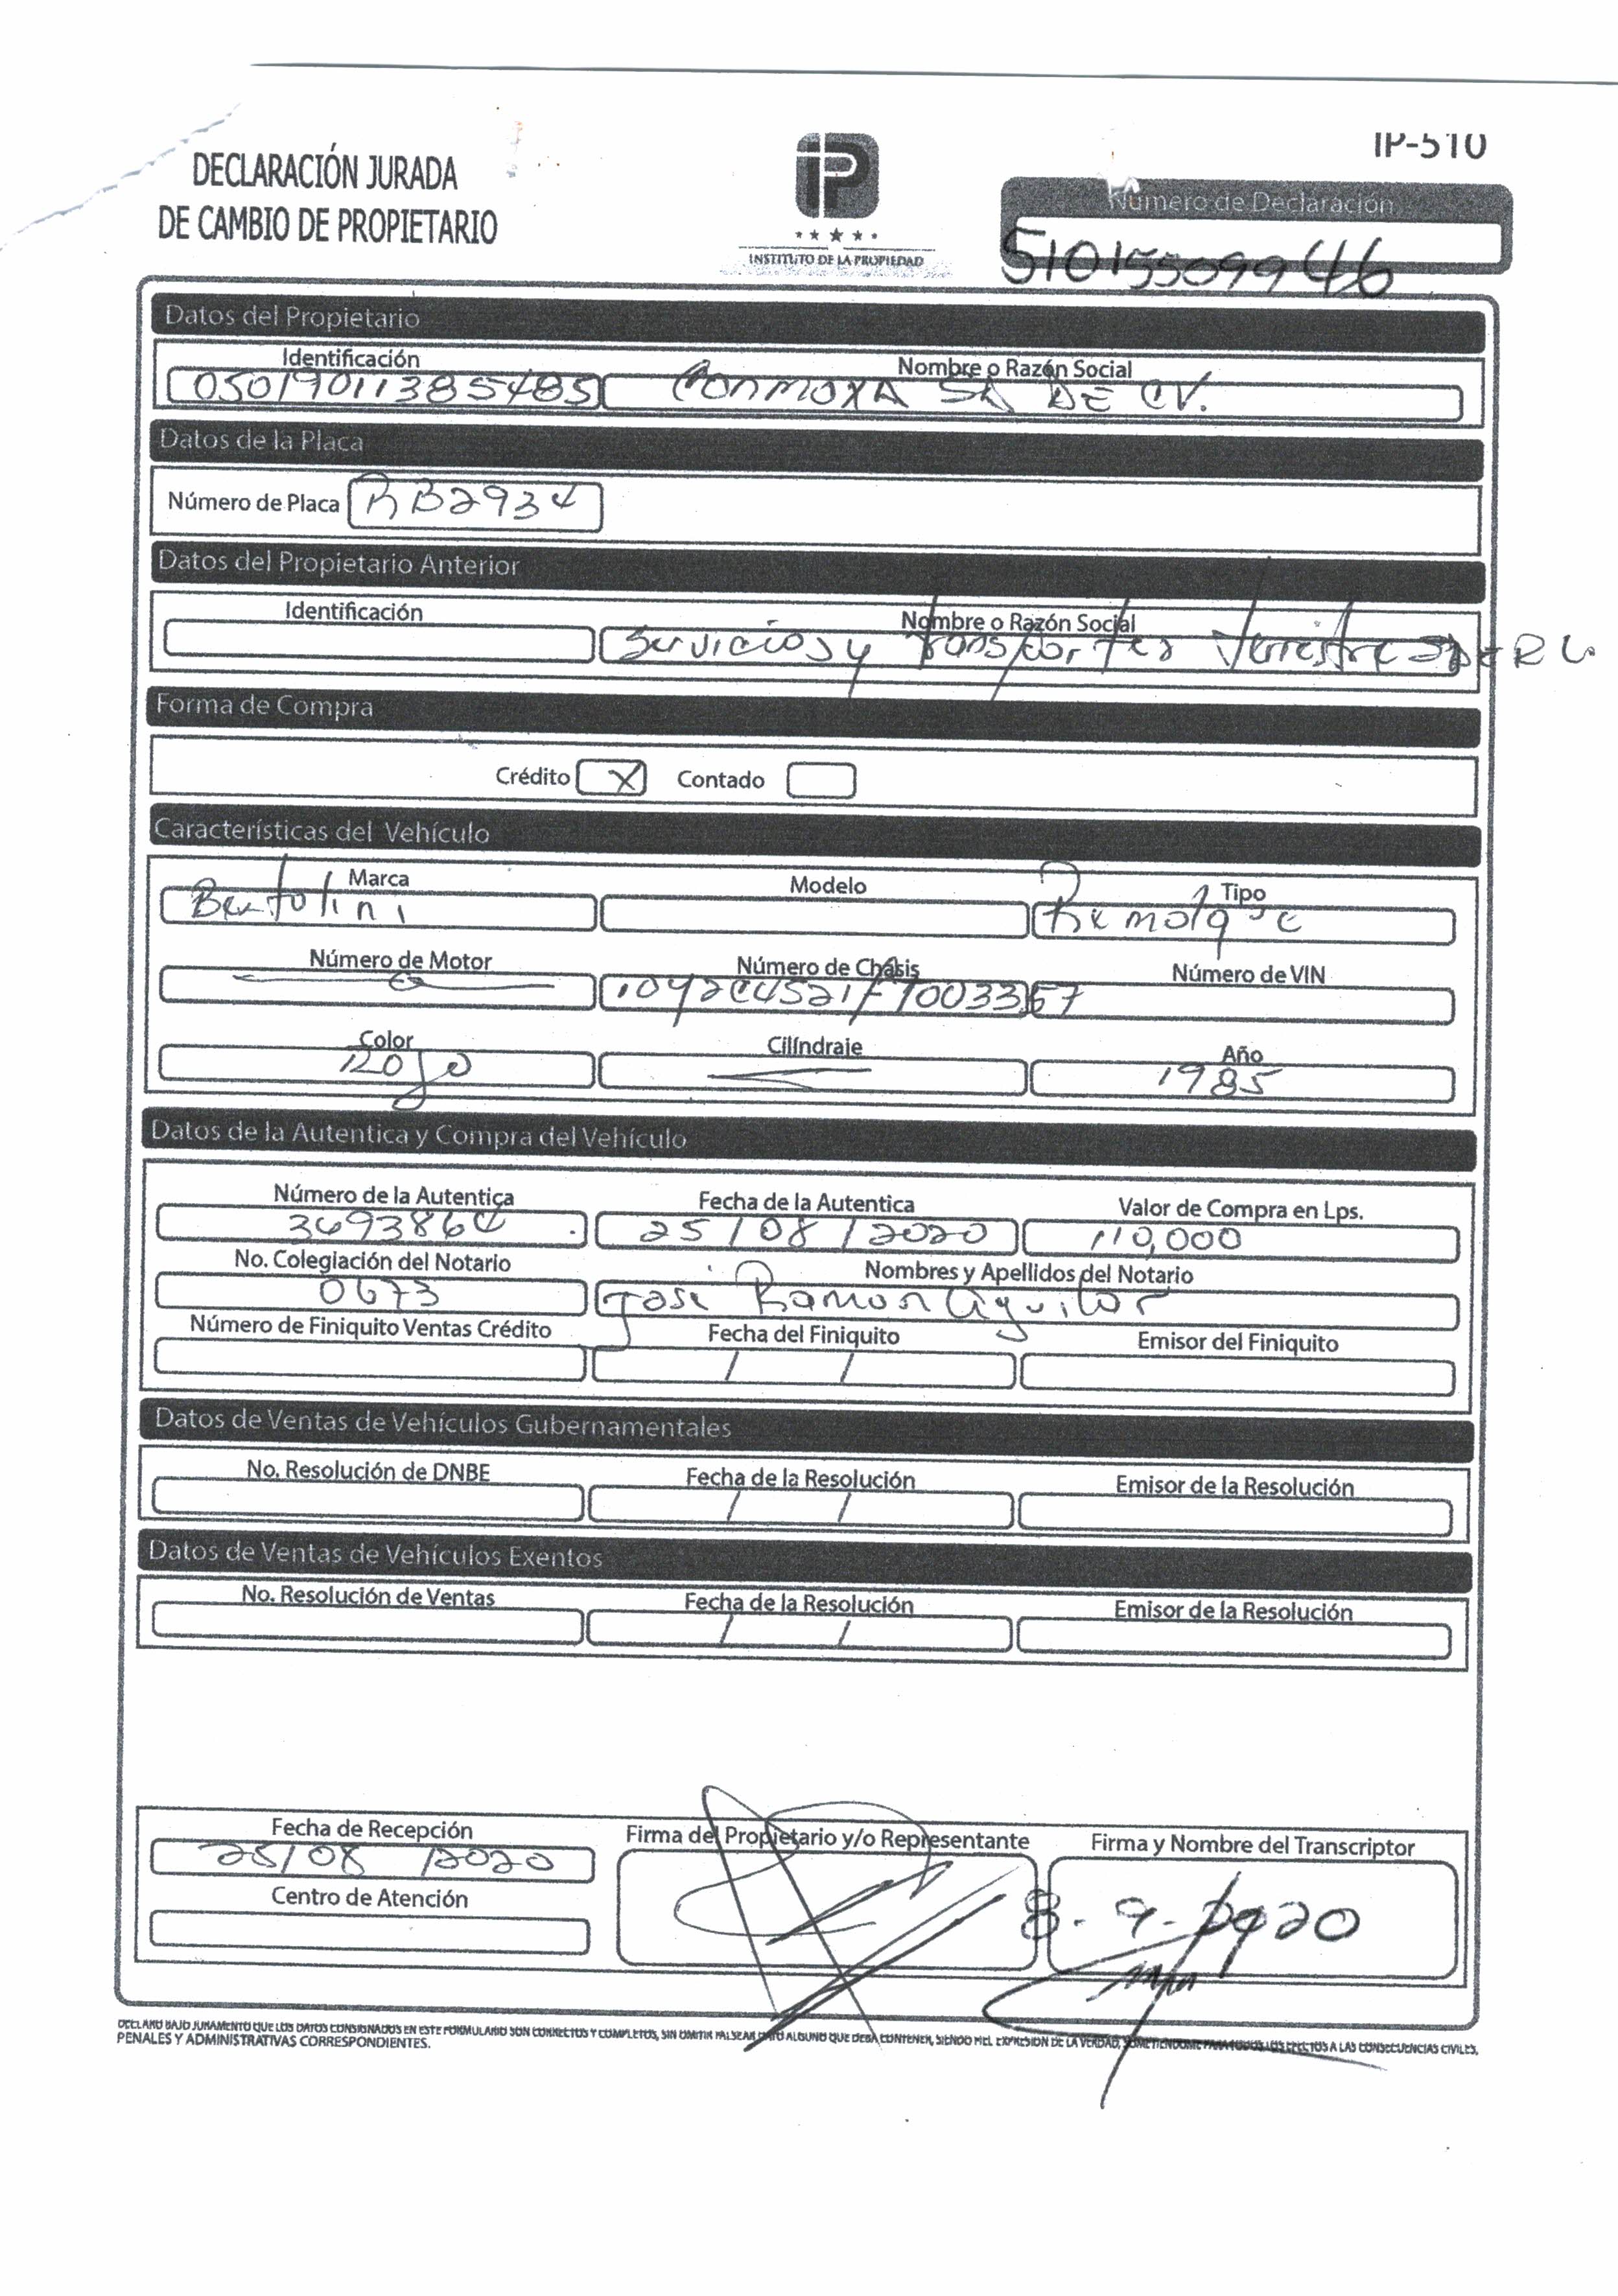 IP-510
DECLARACIÓN JURADA
DE CAMBIO DE PROPIETARIO
iP
INSTITUTO DE LA PROPIEDAD
Número de Declaración
51015509946
Datos del Propietario
Identificación Nombre o Razón Social
05019011385485 Conmoxa SA DE CV.
Datos de la Placa
Número de Placa RB2934
Datos del Propietario Anterior
Identificación Nombre o Razón Social
Servicios y Transportes Terrestre S DE R L.
Forma de Compra
Crédito X Contado
Características del Vehículo
Marca Modelo Tipo
Bertolini Remolque
Número de Motor Número de Chasis Número de VIN
Color Cilíndraje Año
Rojo 1985
Datos de la Autentica y Compra del Vehículo
Número de la Autentica Fecha de la Autentica Valor de Compra en Lps.
3693864 25/08/2020 110,000
No. Colegiación del Notario Nombres y Apellidos del Notario
0673 Jose Ramon Aguilar
Número de Finiquito Ventas Crédito Fecha del Finiquito Emisor del Finiquito
/ /
Datos de Ventas de Vehículos Gubernamentales
No. Resolución de DNBE Fecha de la Resolución Emisor de la Resolución
/ /
Datos de Ventas de Vehículos Exentos
No. Resolución de Ventas Fecha de la Resolución Emisor de la Resolución
/ /
Fecha de Recepción Firma del Propietario y/o Representante Firma y Nombre del Transcriptor
25/08/2020
Centro de Atención
8-9-2020
DECLARO BAJO JURAMENTO QUE LOS DATOS CONSIGNADOS EN ESTE FORMULARIO SON CORRECTOS Y COMPLETOS, SIN OMITIR FALSEAR DATO ALGUNO QUE DEBA CONTENER, SIENDO FIEL EXPRESION DE LA VERDAD, SOMETIENDOME PARA TODOS LOS EFECTOS A LAS CONSECUENCIAS CIVILES,
PENALES Y ADMINISTRATIVAS CORRESPONDIENTES.